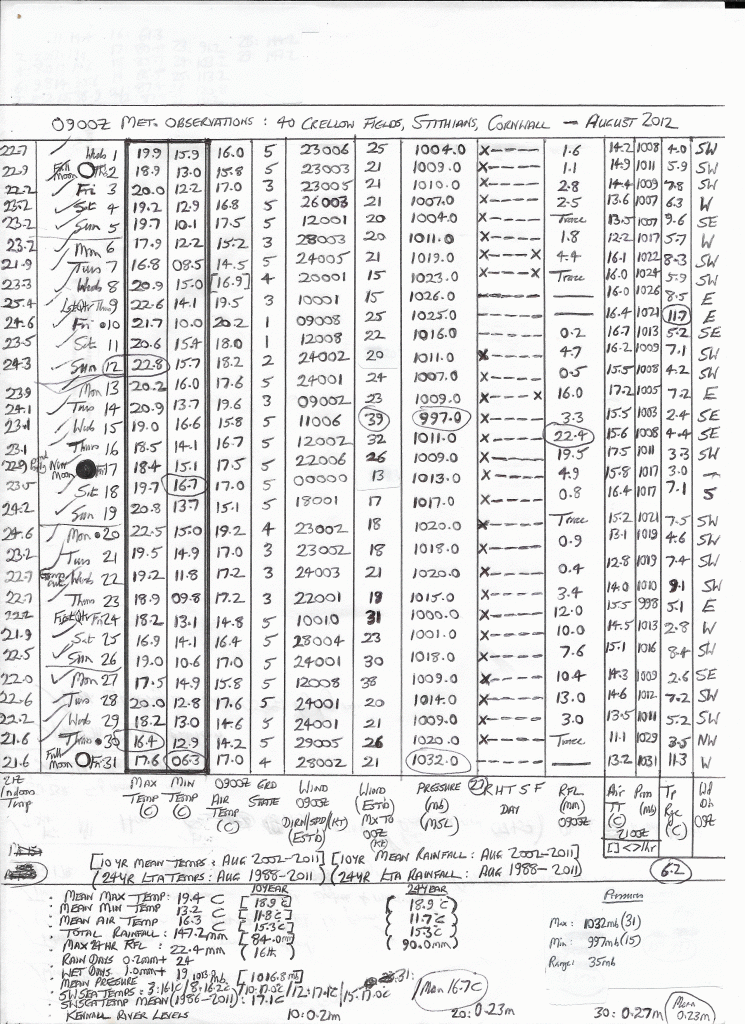 0900Z MET. OBSERVATIONS : 40 CRELLOW FIELDS, STITHIANS, CORNWALL — AUGUST 2012
22.7 ✓ Wed 1 19.9 15.9 16.0 5 23006 25 1004.0 X---- 1.6 14.2 1008 4.0 SW
22.9 Full Moon Th 2 18.9 13.0 15.8 5 23003 21 1009.0 X---- 1.1 14.9 1011 5.9 SW
22.2 ✓ Fri 3 20.0 12.2 17.0 3 23005 21 1010.0 X---- 2.8 14.4 1009 7.8 SW
23.2 ✓ Sat 4 19.2 12.9 16.8 5 26003 21 1007.0 X---- 2.5 13.6 1007 6.3 W
23.2 ✓ Sun 5 19.7 10.1 17.5 5 12001 20 1004.0 X---- Trace 13.5 1007 9.6 SE
23.2 Mon 6 17.9 12.2 15.2 3 28003 20 1011.0 X---- 1.8 12.2 1017 5.7 W
21.9 ✓ Tues 7 16.8 08.5 14.5 5 24005 21 1019.0 X----X 4.4 16.1 1022 8.3 SW
23.3 ✓ Weds 8 20.9 15.0 [16.9] 4 20001 15 1023.0 X----X Trace 16.0 1024 5.9 SW
25.4 Lst Qtr Thur 9 22.6 14.1 19.5 3 10001 15 1026.0 ----- — 16.0 1026 8.5 E
24.6 ✓ Fri • 10 21.7 10.0 20.2 1 09008 25 1025.0 — 16.4 1021 11.7 E
23.5 ✓ Sat 11 20.6 15.4 18.0 1 12008 22 1016.0 ----- 0.2 16.7 1013 5.2 SE
24.3 ✓ Sun 12 22.8 15.7 18.2 2 24002 20 1011.0 X---- 4.7 16.2 1009 7.1 SW
23.9 Mon 13 20.2 16.0 17.6 5 24001 24 1007.0 X---- 0.5 15.5 1008 4.2 SW
24.1 ✓ Tues 14 20.9 13.7 19.6 3 09002 23 1009.0 X----X 16.0 17.2 1005 7.2 E
23.1 ✓ Weds 15 19.0 16.6 15.8 5 11006 39 997.0 X---- 3.3 15.5 1003 2.4 SE
23.1 ✓ Thurs 16 18.5 14.1 16.7 5 12002 32 1011.0 X---- 22.4 15.6 1008 4.4 SE
22.9 New Moon Fri 17 18.4 15.1 17.5 5 22006 26 1009.0 X---- 19.5 17.5 1011 3.3 SW
23.5 ✓ Sat 18 19.7 16.7 17.0 5 00000 13 1013.0 X---- 4.9 15.8 1017 3.0 —
24.2 ✓ Sun 19 20.8 13.7 15.1 5 18001 17 1017.0 X---- 0.8 16.4 1017 7.1 S
24.6 ✓ Mon • 20 22.5 15.0 19.2 4 23002 18 1020.0 X---- Trace 15.2 1021 7.5 SW
23.2 ✓ Tues 21 19.5 14.9 17.0 3 23002 18 1018.0 X---- 0.9 13.1 1019 4.6 SW
22.7 Weds 22 19.2 11.8 17.2 3 24003 21 1020.0 X---- 0.4 12.8 1019 7.4 SW
22.7 ✓ Thurs 23 18.9 09.8 17.2 3 22001 18 1015.0 X---- 3.4 14.0 1010 9.1 SW
22.2 First Qtr Fri 24 18.2 13.1 14.8 5 10010 31 1000.0 X---- 12.0 15.5 998 5.1 E
21.9 ✓ Sat 25 16.9 14.1 16.4 5 28004 23 1001.0 X---- 10.0 14.5 1013 2.8 W
22.5 ✓ Sun 26 19.0 10.6 17.0 5 24001 30 1018.0 X---- 7.6 15.1 1016 8.4 SW
22.0 ✓ Mon 27 17.5 14.9 15.8 5 12008 38 1009.0 X---- 10.4 14.3 1009 2.6 SE
22.6 ✓ Tues 28 20.0 12.8 17.6 5 24001 20 1014.0 X---- 13.0 14.6 1012 7.2 SW
22.2 ✓ Weds 29 18.2 13.0 14.6 5 24001 21 1009.0 X---- 3.0 13.5 1011 5.2 SW
21.6 ✓ Thurs • 30 16.4 12.9 14.2 5 29005 26 1020.0 X---- Trace 11.1 1029 3.5 NW
21.6 Full Moon Fri 31 17.6 06.3 17.0 4 28002 21 1032.0 ----- — 13.2 1031 11.3 W
21Z Indoors Temp
MAX TEMP (C)
MIN TEMP (C)
0900Z AIR TEMP (C)
GRD STATE
WIND 0900Z DIRN/SPD (KT) (ESTD)
WIND (ESTD) MX TO 00Z (KT)
PRESSURE (mb) (MSL)
R H T S F DAY
RFL (MM) 0900Z
Air TT (C) 2100Z
Prsn (mb)
[ ] <> 1hr
(C)
Wd Dn 09Z
[10 YR MEAN TEMPS : AUG 2002-2011] [10 YR MEAN RAINFALL : AUG 2002-2011]
(24YR LTA TEMPS : AUG 1988-2011) (24YR LTA RAINFALL : AUG 1988-2011) 6.2
10YEAR 24YEAR
• MEAN MAX TEMP: 19.4 C [18.9 C] (18.9 C)
• MEAN MIN TEMP 13.2 C [11.8 C] (11.7 C)
• MEAN AIR TEMP 16.3 C [15.3 C] (15.3 C)
• TOTAL RAINFALL: 147.2mm [84.0mm] (90.0mm)
• MAX 24HR RFL : 22.4mm (16th)
• RAIN DAYS 0.2mm+ 24
• WET DAYS 1.0mm+ 19
• MEAN PRESSURE 1013mb [1016.8mb]
• SW SEA TEMPS : 3:16.1C / 8:16.2C / 10:17.0C / 12:17.1C / 15:17.0C Mean 16.7C
• SW SEA TEMP MEAN (1986-2011): 17.1C
KENNALL RIVER LEVELS 10: 0.2m 20: 0.23m 30: 0.27m Mean 0.23m
Pressures
Max : 1032mb (31)
Min : 997mb (15)
Range: 35mb